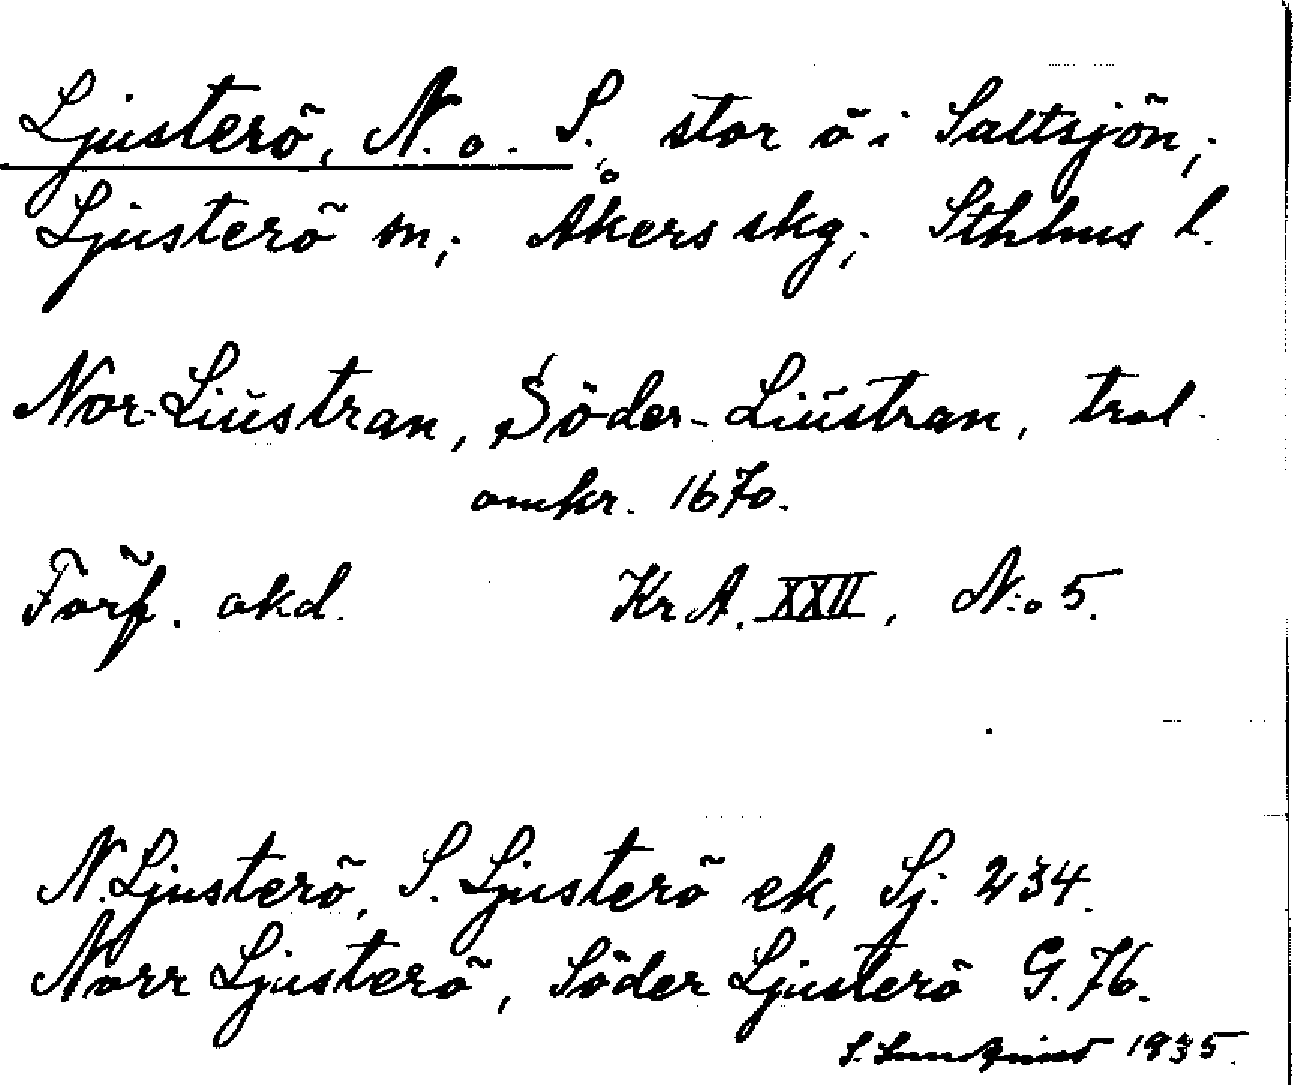 Ljusterö, N. o. S. stor ö i Saltsjön,
Ljusterö sn, Åkers skg, Sthlms l.
Nor-Liüstran, Söder-Liüstran, trol.
omkr. 1670.
Förf. okd. Kr A. XXII, N:o 5.
N. Ljusterö, S. Ljusterö ek, Sj. 234.
Norr Ljusterö, Söder Ljusterö G. 76.
1935.